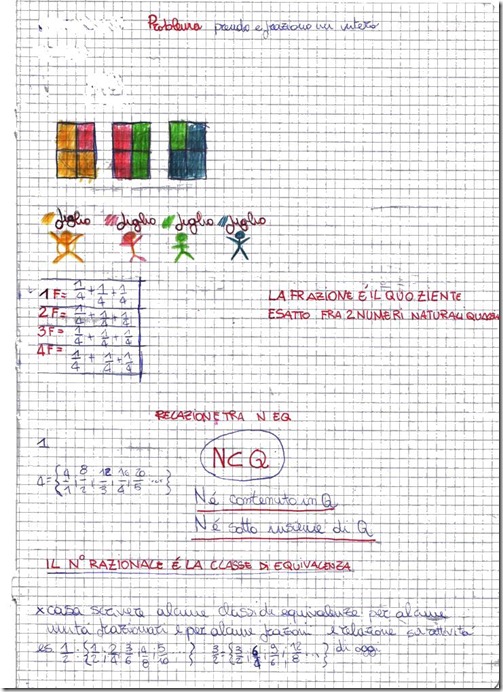 Problema prendo e fraziono un intero
figlio figlio figlio figlio
1F= 1/4 + 1/4 + 1/4
2F= 1/4 + 1/4 + 1/4
3F= 1/4 + 1/4 + 1/4
4F= 1/4 + 1/4 + 1/4
LA FRAZIONE É IL QUOZIENTE
ESATTO FRA 2 NUMERI NATURALI
RELAZIONE TRA N E Q
1
4={4/1, 8/2, 12/3, 16/4, 20/5 ...}
N⊂Q
N é contenuto in Q
N é sotto insieme di Q
IL N° RAZIONALE É LA CLASSE DI EQUIVALENZA
x casa scrivere alcune classi di equivalenze per alcune
unità frazionari e per alcune frazioni e relazione su attività
es. 1/2 {1/2, 2/4, 3/6, 4/8, 5/10 ...} 3/2 {3/2, 6/4, 9/6, 12/8 ...} di oggi